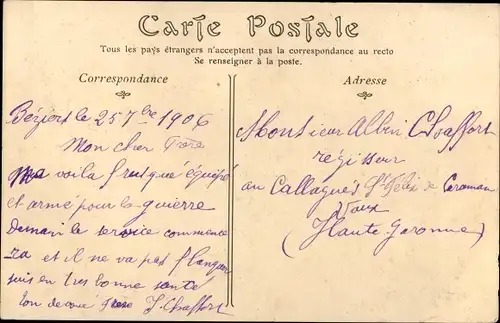 Carte Postale
Tous les pays étrangers n'acceptent pas la correspondance au recto
Se renseigner à la poste.
Correspondance
Béziers le 25 7bre 1906
Mon cher Frère
Me voila frusqué équipé
et armé pour la guerre
Demain le service commence
ra et il ne va pas flanquer
suis en tres bonne santé
ton frere J. Chaffort
Adresse
Monsieur Albin Chaffort
régisseur
au Callagués St Félix de Caraman
Vaux
(Haute Garonne)